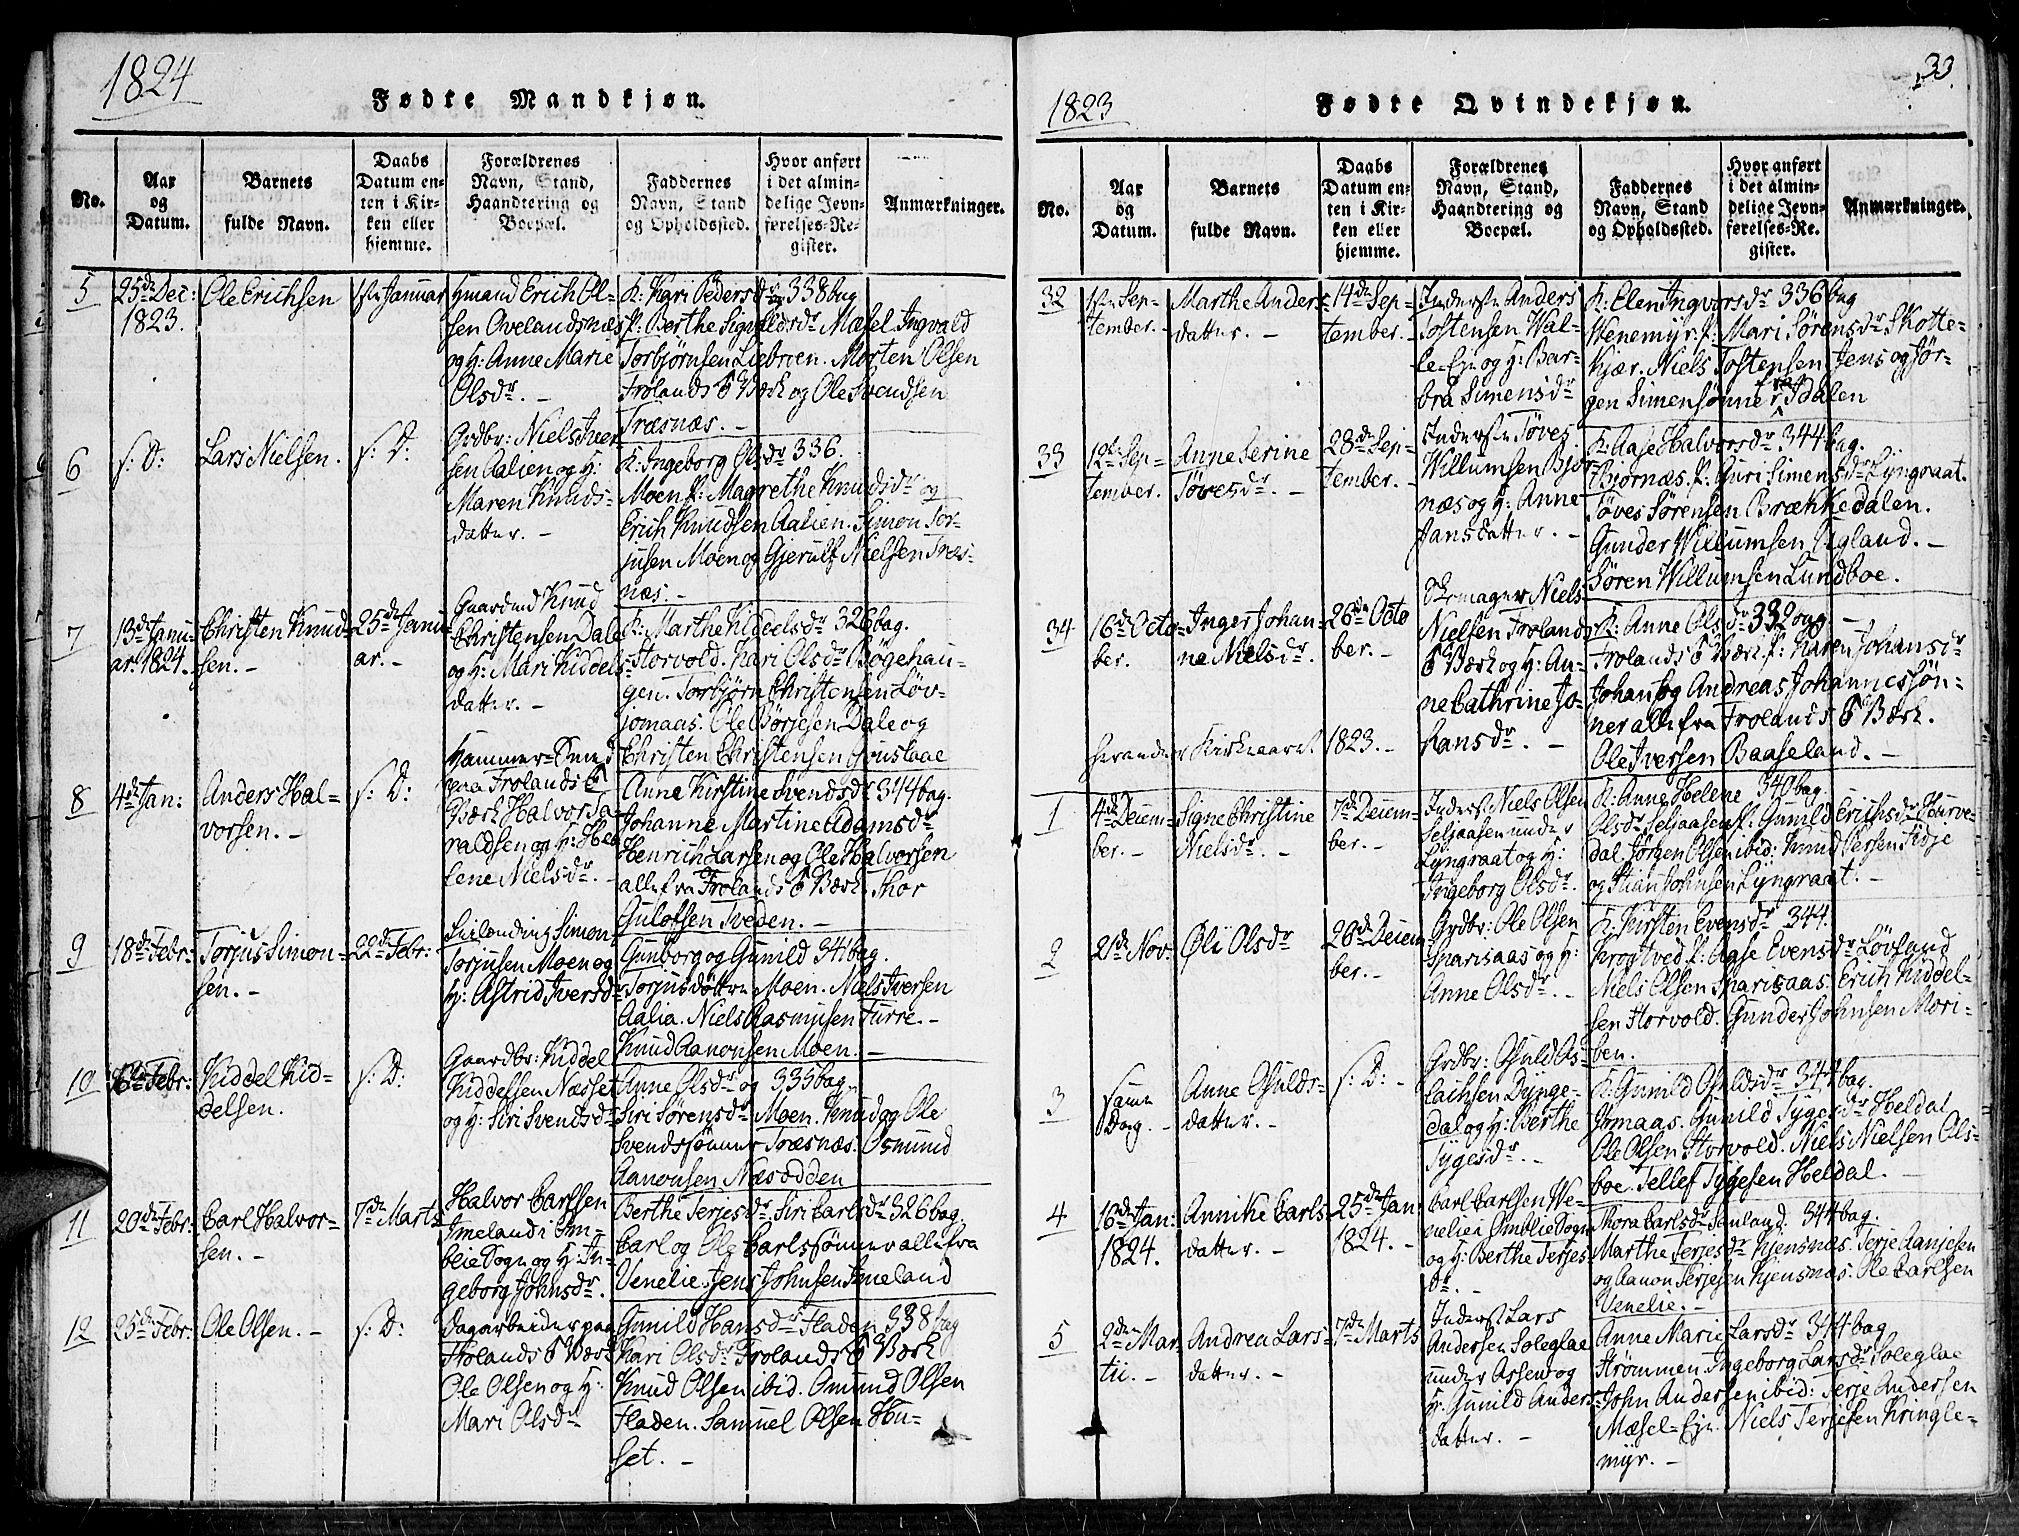 1824
Fødte Mandkjøn.
No.
Aar
og
Datum.
Barnets
fulde Navn.
Daabs
Datum en-
ten i Kir-
ken eller
hjemme.
Forældrenes
Navn, Stand,
Haandtering og
Boepæl.
Faddernes
Navn, Stand
og Opholdssted.
Hvor anført
i det almin-
delige Jevn-
førelses-Re-
gister.
Anmærkninger.
5
25de Dec:
1823.
Ole Erichsen
1ste Januar
Hmand Erich Ol-
sen Ovelandsnæs
og H: Anne Marie
Olsdr. -
K: Kari Peders Dr 338 bag
P: Berthe Sigvaldsdr Mæsel Ingvald
Torbjørnsen Liebroen. Morten Olsen
Frolands Værk og Ole Svendsen
Træsnæs. -
6
s: D:
Lars Nielsen.
s: D:
Grdbr: Niels Iver
sen Aalien og H:
Maren Knuds-
datter. -
K: Ingeborg Olsdr 336.
Moen P: Magrethe Knudsdr og
Erich Knudsen Aalien. Simon Tor-
jusen Moen og Gjerulf Nielsen Træs-
næs. -
7
13de Janu-
ar. 1824.
Christen Knud-
sen. -
25de Janu-
ar. -
Gaardmd Knud
Christensen Dale
og H: Mari Kiddels-
datter. -
K: Marthe Kiddelsdr 326 bag.
Storvold. Kari Olsdr Bøgehau-
gen. Torbjørn Christensen Løv-
jomaas. Ole Børjesen Dale og
Christen Christensen
8
4de Jan:
Anders Hal-
vorsen. -
s: D:
Hammer-Smed
paa Frolands
Værk Halvor Ta
raldsen og H: Hel
lene Nielsdr. -
Anne Kirstine Svendsdr 344 bag.
Johanne Martine Adamsdr
Henrich Larsen og Ole Halvorsen
alle fra Frolands Værk Thor
Gulofsen Tveden. -
9
18de Febr:
Torjus Simon-
sen. -
22de Febr:
Simon
Torjusen Moen og
H: Astrid Iversdr
Gunborg og Gunild 341 bag.
Torjusdøttre Moen. Niels Iversen
Aalia. Niels Aasmusen Furre. -
Knud Aanonsen Moen. -
10
Febr:
Kiddel Kid-
delsen.
s: D:
Gaardbr: Kiddel
Kiddelsen Næsset
og H: Siri Svendsdr
Anne Olsdr og 335 bag
Siri Sørensdr Moen. Knud og Ole
Svendssønner Træsnæs. Osmund
Aanonsen Næsodden
11
20de Febr:
Carl Halvor-
sen. -
7de Marts
Halvor Carlsen
Imeland i Om-
blie Sogn og H: In-
geborg Johnsdr.
Berthe Terjesdr Siri Carlsdr 326 bag.
Carl og Ole Carlssønner alle fra
Venelie. Jens Johnsen Imeland
12
25de Febr:
Ole Olsen. -
s: D:
Dagarbeider paa
Frolands Værk
Ole Olsen og H:
Mari Olsdr
Gunild Hansdr Fladen 338 bag
Kari Olsdr Frolands Værk
Knud Olsen ibid. Omund Olsen
Fladen. Samuel Olsen Hu-
set. -
33.
1823
Fødte Qvindekjøn.
No.
Aar
og
Datum.
Barnets
fulde Navn.
Daabs
Datum en-
ten i Kir-
ken eller
hjemme.
Forældrenes
Navn, Stand,
Haandtering og
Boepæl.
Faddernes
Navn, Stand
og Opholdssted.
Hvor anført
i det almin-
delige Jevn-
førelses-Re-
gister.
Anmærkninger.
32
1ste Sep-
tember. -
Marthe Anders-
datter. -
14de Sep-
tember. -
Inderste Anders
Tostensen Wal-
le-Eje og H: Bar-
bra Simensdr
K: Elen Ingvorsdr 336 bag
Wenemyr. P: Mari Sørensdr Skotte-
Kjær. Niels Tostensen Jens og Jør-
gen Simensønner fra Idalen
33
12te Sep-
tember.
Anne Serine
Tøvesdr. -
28de Sep-
tember. -
Inderste Tøves
Willumsen Bjor
næs og H: Anne
Jansdatter. -
K: Aase Halvorsdr 344 bag.
Bjørnæs. P: Guri Simensdr Lyngraat.
Tøves Sørensen Brækkedalen.
Gunder Willumsen Ugland. -
Søren Willumsen Lundboe.
34
16de Octo-
ber.
Inger Johan-
ne Nielsdr.
26de Octo
ber. -
Skomager Niels
Nielsen Frolands
Værk og H: An-
ne Cathrine Jo-
hansdr. -
K: Anne Olsdr 332 bag -
Frolands Værk P: Karen Johansdr
Johans og Andreas Johannessøn-
ner alle fra Frolands Værk.
Ole Iversen Baaseland. -
herander Kirkeaaret 1823. -
1
4de Decem-
ber. -
Signe Christine
Nielsdr. -
7de Decem-
ber. -
Inderst Niels Olsen
Seljaasen under
Lyngraat og H:
Ingeborg Olsdr.
K: Anne Helene 340 bag
Olsdr Seljaasen P: Gunild Erichsdr Hurve-
dal. Jørgen Olsen ibid: Knud Persen Fidje
og Stian Johnsen Lyngraat. -
2
21de Nov:
Øli Olsdr
26de Decem
ber. -
Grdbr: Ole Olsen
Sparisaas og H:
Anne Olsdr. -
K: Kirsten Evensdr 344.
Krogtved P: Aase Evensdr Løvland
Niels Olsen Sparisaas. Erich Kiddel-
sen Storvold. Gunder Johnsen Mori-
ben.
3
samme
Dag. -
Anne Osulds-
datter. -
s: D: -
Grdbr: Osuld As-
lachsen Dynge-
dal og H: Berthe
Tygesdr. -
K: Gunild Osuldsdr 344 bag.
Jomaas. Gunild Tygesdr Heldal
Ole Olsen Storvold. Niels Nielsen Ols-
boe. Tellef Tygesen Heldal.
4
16de Jan:
1824.
Annike Carls-
datter. -
25de Jan:
1824. -
Carl Carlsen Ve-
nelien Omblie Sogn
og H: Berthe Terjes
dr. -
Thora Carlsdr Sanland. 344 bag.
Marthe Terjesdr Kjensnæs. Terje Aanjesen
og Aanon Terjesen Kjensnæs. Ole Carlsen
Venelie. -
5
2den Mar
tii. -
Andrea Lars-
datter. -
7de Marts
Inderst Lars
Andersen Soleglae
under Assev og
H: Gunild Anders-
datter. -
Anne Marie Larsdr 344 bag
Strømmen. Ingeborg Larsdr Soleglae
John Andersen ibid: Terje Andersen
Mæsel-Eje. Niels Terjesen Kringle-
myr. -